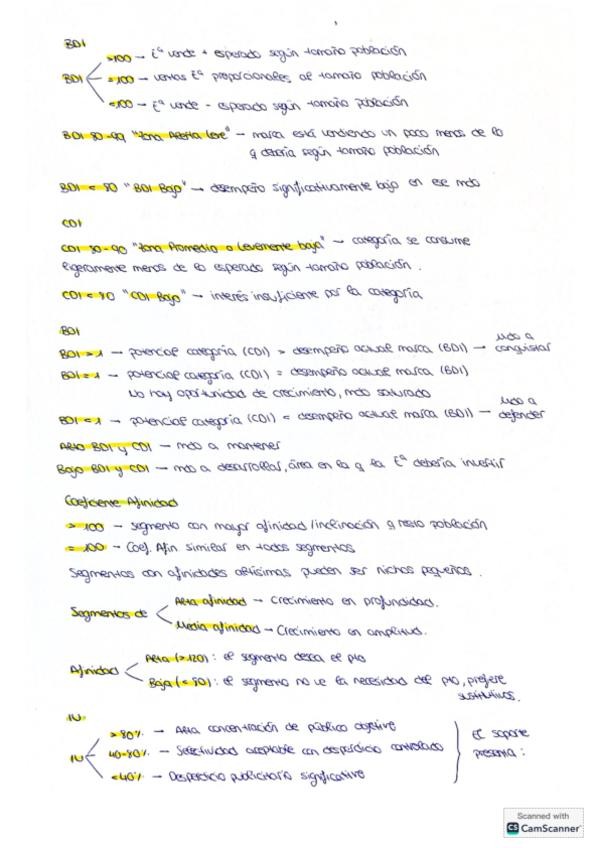 BDI
>100 → Eª vende + esperado según tamaño población
BDI = 100 → ventas Eª proporcionales al tamaño población
<100 → Eª vende - esperado según tamaño población
BDI 80-99 "Zona Alerta Leve" → marca está vendiendo un poco menos de lo
q debería según tamaño población
BDI < 80 "BDI Bajo" → desempeño significativamente bajo en ese mdo
CDI
CDI 80-90 "Zona Promedio o Levemente baja" → categoría se consume
ligeramente menos de lo esperado según tamaño población.
CDI < 80 "CDI Bajo" → interés insuficiente por la categoría
BOI
BOI > 1 → potencial categoría (CDI) > desempeño actual marca (BDI) → mdo a conquistar
BOI = 1 → potencial categoría (CDI) = desempeño actual marca (BDI)
No hay oportunidad de crecimiento, mdo saturado
BOI < 1 → potencial categoría (CDI) < desempeño actual marca (BDI) → mdo a defender
Alto BDI y CDI → mdo a mantener
Bajo BDI y CDI → mdo a desarrollar, área en la q la Eª debería invertir
Coeficiente Afinidad
> 100 → segmento con mayor afinidad/inclinación q resto población
= 100 → Coef. Afin similar en todos segmentos
Segmentos con afinidades altísimas pueden ser nichos pequeños.
Segmentos de
Alta afinidad → Crecimiento en profundidad.
Media afinidad → Crecimiento en amplitud.
Afinidad
Alta (>120): el segmento desea el pto
Baja (<80): el segmento no ve la necesidad del pto, prefiere
sustitutivos.
IU
>80% → Alta concentración de público objetivo
IU 40-80% → Selectividad aceptable con desperdicio controlado
<40% → Desperdicio publicitario significativo
El soporte
presenta:
Scanned with
CS CamScanner